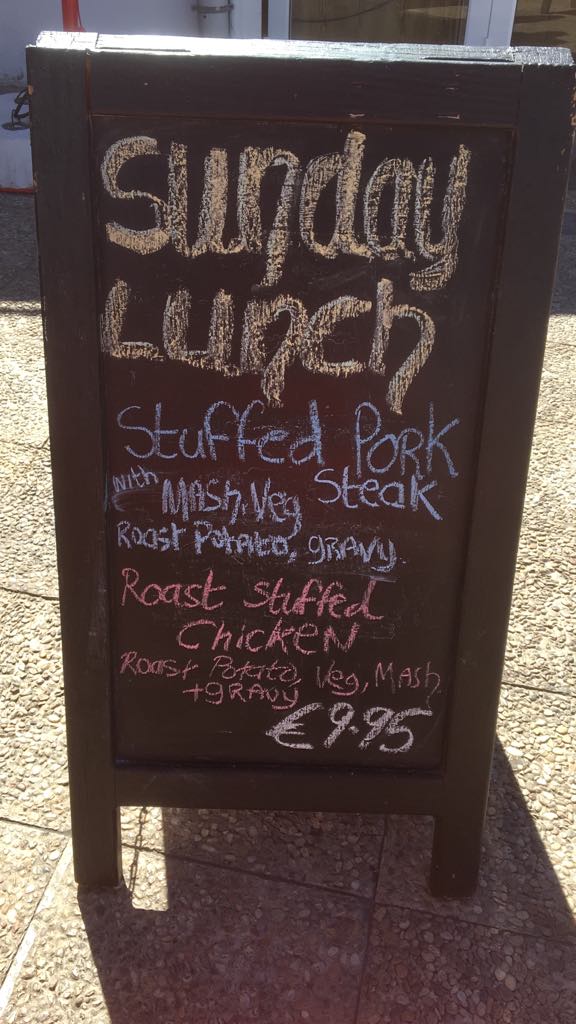 Sunday
Lunch
Stuffed Pork
Steak
with Mash, Veg
Roast Potato, gravy
Roast Stuffed
Chicken
Roast Potato, Veg, Mash
+ gravy
€9.95